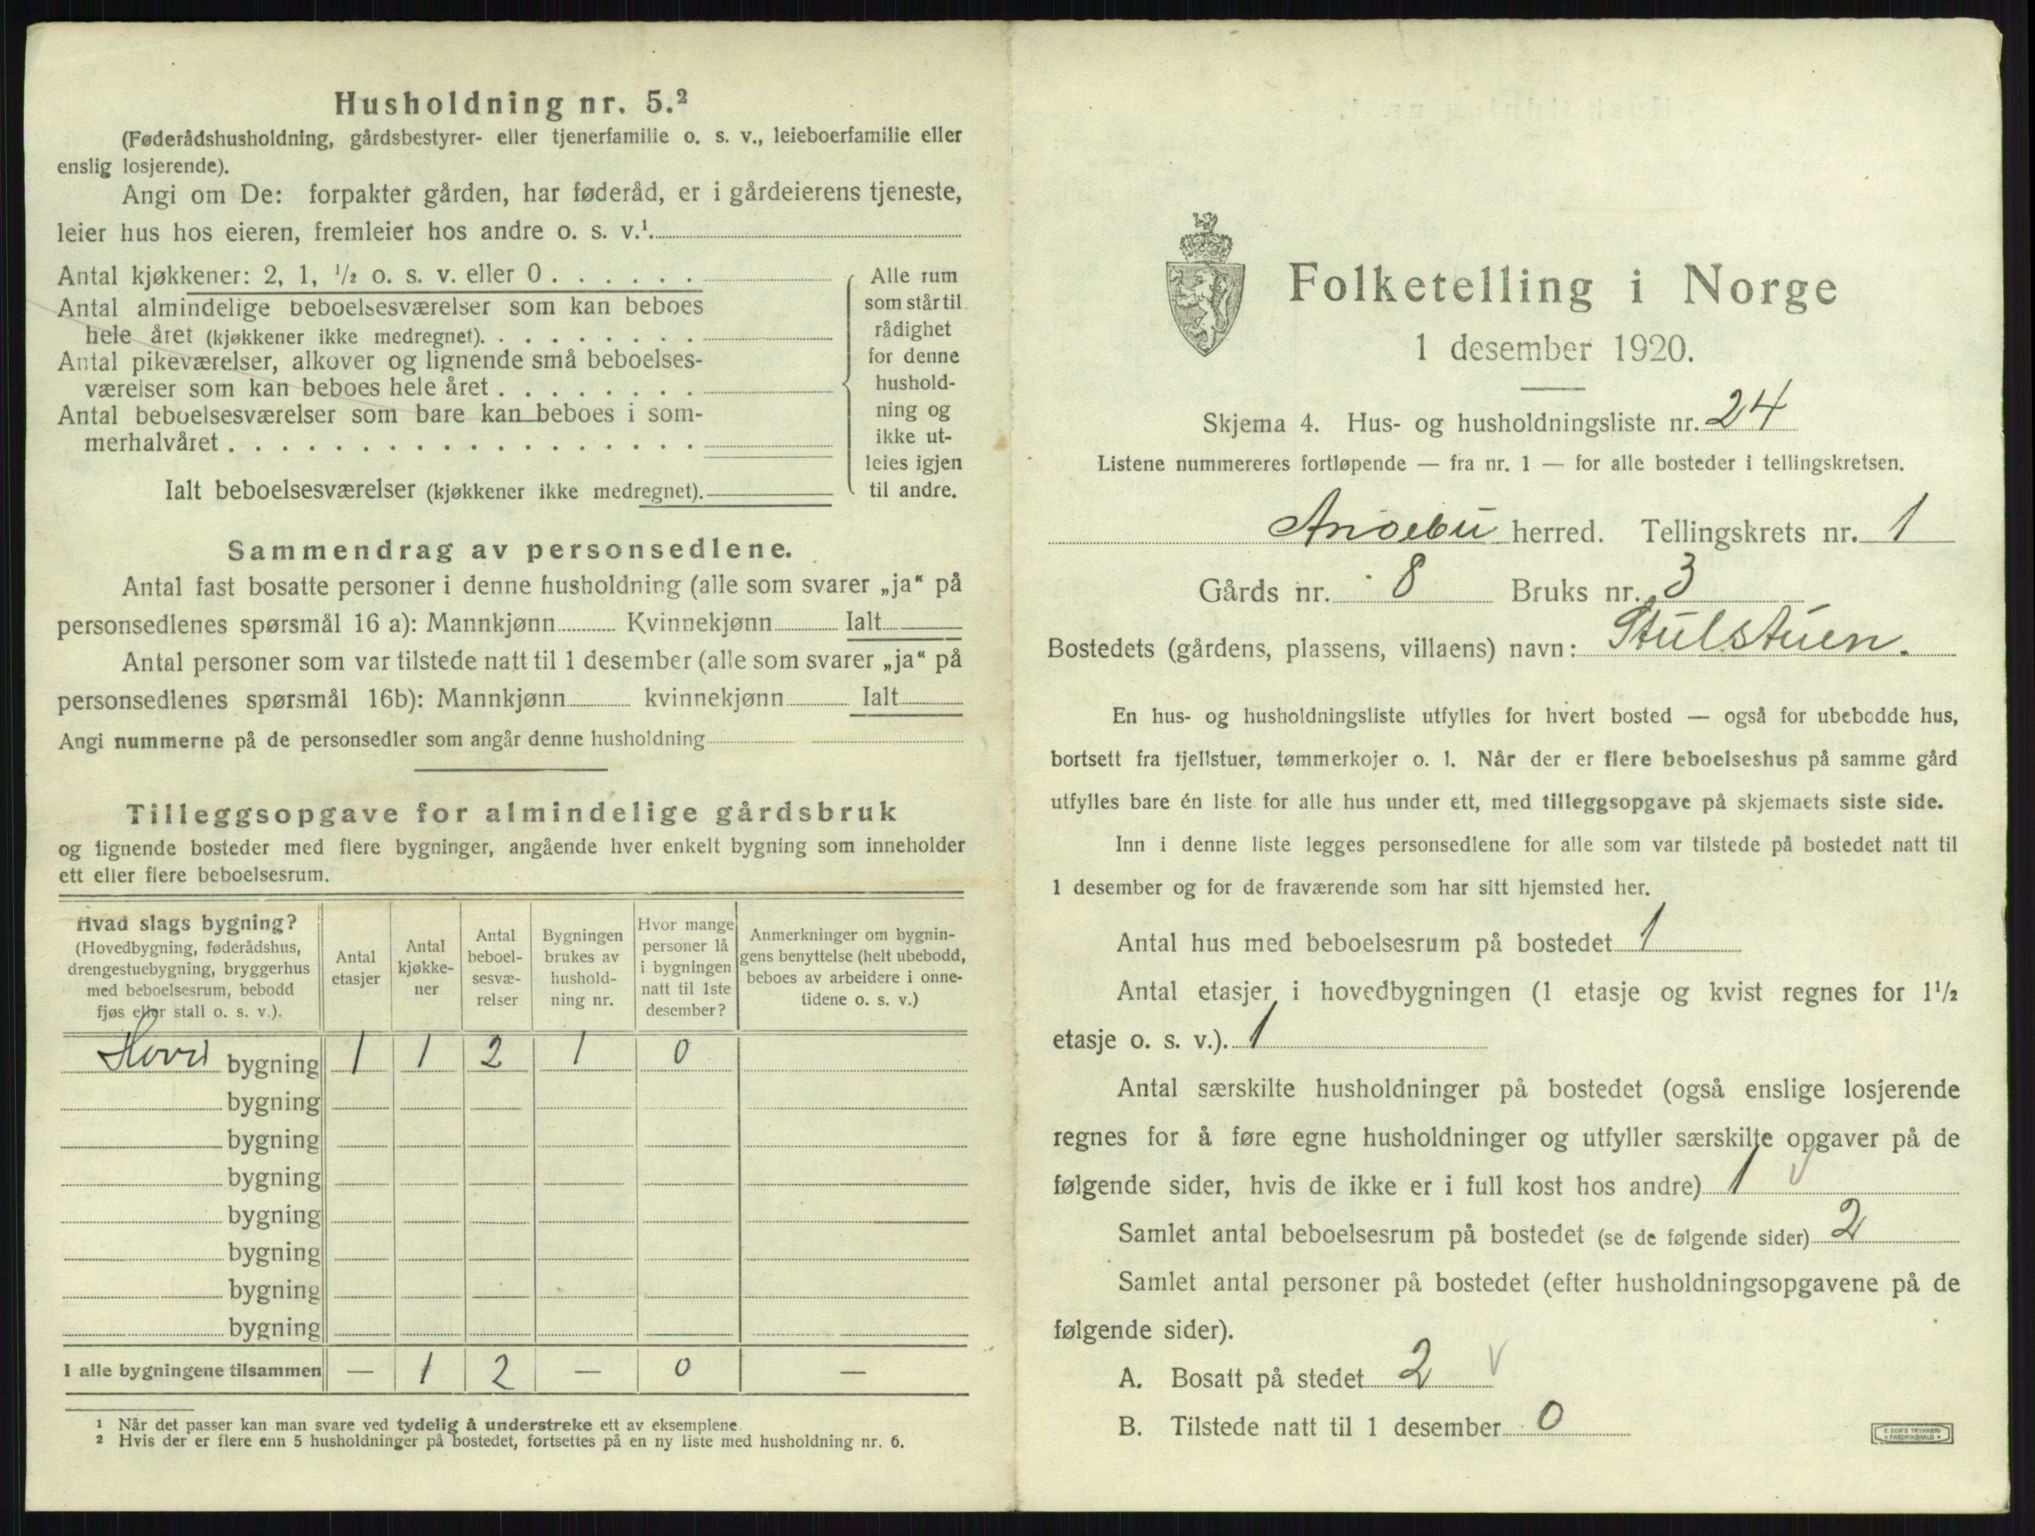 Husholdning nr. 5.²
(Føderådshusholdning, gårdsbestyrer- eller tjenerfamilie o. s. v., leieboerfamilie eller
enslig losjerende).
Angi om De: forpakter gården, har føderåd, er i gårdeierens tjeneste,
leier hus hos eieren, fremleier hos andre o. s. v.¹
Antal kjøkkener: 2, 1, ½ o. s. v. eller 0
Antal almindelige beboelsesværelser som kan beboes
hele året (kjøkkener ikke medregnet)
Antal pikeværelser, alkover og lignende små beboelses-
værelser som kan beboes hele året
Antal beboelsesværelser som bare kan beboes i som-
merhalvåret
Ialt beboelsesværelser (kjøkkener ikke medregnet)
Alle rum
som står til
rådighet
for denne
hushold-
ning og
ikke ut-
leies igjen
til andre.
Sammendrag av personsedlene.
Antal fast bosatte personer i denne husholdning (alle som svarer „ja“ på
personsedlenes spørsmål 16 a): Mannkjønn Kvinnekjønn Ialt
Antal personer som var tilstede natt til 1 desember (alle som svarer „ja“ på
personsedlenes spørsmål 16b): Mannkjønn kvinnekjønn Ialt
Angi nummerne på de personsedler som angår denne husholdning
Tilleggsopgave for almindelige gårdsbruk
og lignende bosteder med flere bygninger, angående hver enkelt bygning som inneholder
ett eller flere beboelsesrum.
Hvad slags bygning?
(Hovedbygning, føderådshus,
drengestuebygning, bryggerhus
med beboelsesrum, bebodd
fjøs eller stall o. s. v.).
Antal
etasjer
Antal
kjøkke-
ner
Antal
beboel-
sesvæ-
relser
Bygningen
brukes av
hushold-
ning nr.
Hvor mange
personer lå
i bygningen
natt til 1ste
desember?
Anmerkninger om bygnin-
gens benyttelse (helt ubebodd,
beboes av arbeidere i onne-
tidene o. s. v.)
Hoved bygning 1 1 2 1 0
bygning
bygning
bygning
bygning
bygning
bygning
bygning
I alle bygningene tilsammen — 1 2 — 0 —
¹ Når det passer kan man svare ved tydelig å understreke ett av eksemplene
² Hvis der er flere enn 5 husholdninger på bostedet, fortsettes på en ny liste med husholdning nr. 6.
Folketelling i Norge
1 desember 1920.
Skjema 4. Hus- og husholdningsliste nr. 24
Listene nummereres fortløpende — fra nr. 1 — for alle bosteder i tellingskretsen.
Andebu herred. Tellingskrets nr. 1
Gårds nr. 8 Bruks nr. 3
Bostedets (gårdens, plassens, villaens) navn: Stulstuen.
En hus- og husholdningsliste utfylles for hvert bosted — også for ubebodde hus,
bortsett fra fjellstuer, tømmerkojer o. l. Når der er flere beboelseshus på samme gård
utfylles bare én liste for alle hus under ett, med tilleggsopgave på skjemaets siste side.
Inn i denne liste legges personsedlene for alle som var tilstede på bostedet natt til
1 desember og for de fraværende som har sitt hjemsted her.
Antal hus med beboelsesrum på bostedet 1
Antal etasjer i hovedbygningen (1 etasje og kvist regnes for 1½
etasje o. s. v.). 1
Antal særskilte husholdninger på bostedet (også enslige losjerende
regnes for å føre egne husholdninger og utfyller særskilte opgaver på de
følgende sider, hvis de ikke er i full kost hos andre) 1 √
Samlet antal beboelsesrum på bostedet (se de følgende sider) 2
Samlet antal personer på bostedet (efter husholdningsopgavene på de
følgende sider).
A. Bosatt på stedet 2 √
B. Tilstede natt til 1 desember 0
E. SEM'S TRYKKERI
FREDRIKSHALD